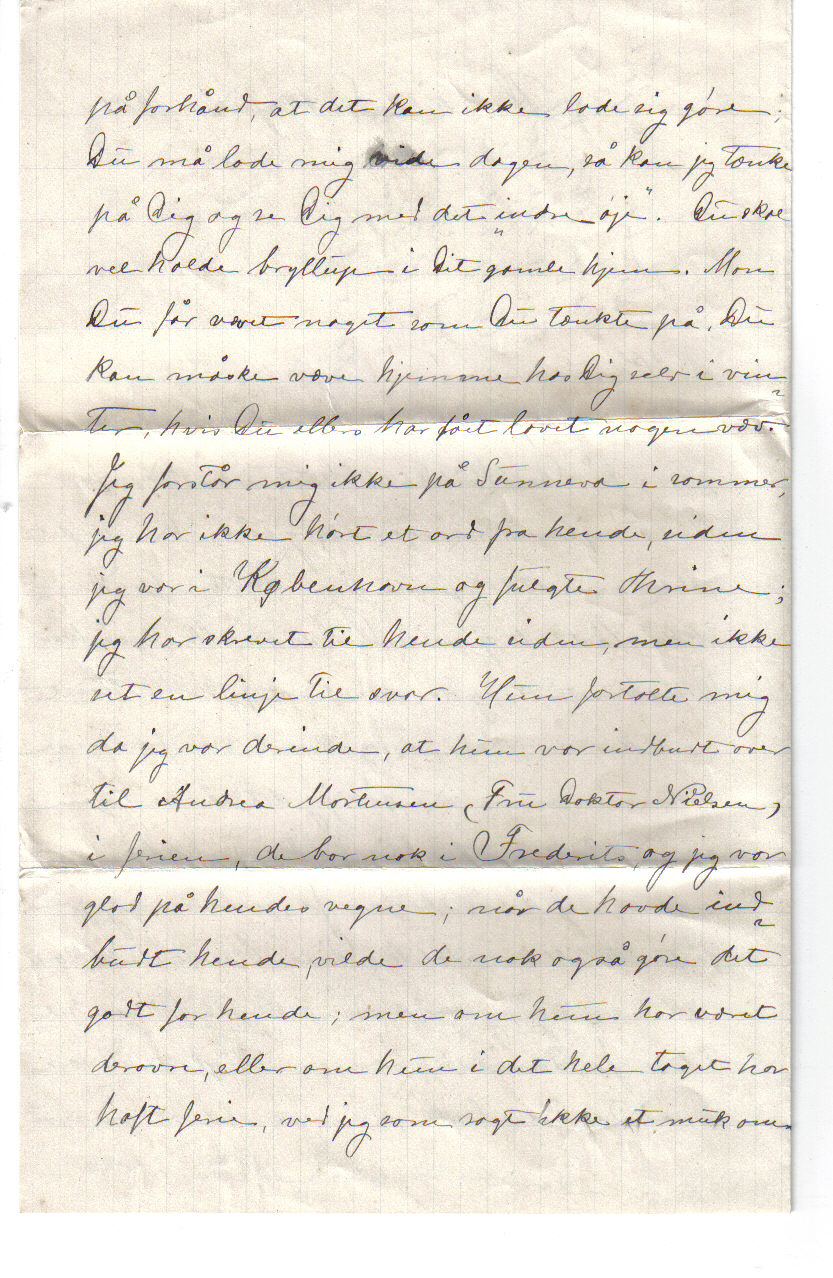 på forhånd, at det kan ikke lade sig göre;
Du må lade mig vide dagen, så kan jeg tænke
på Dig og se Dig med det „indre øje“. Du skal
vel holde bryllup i Dit gamle hjem. Mon
Du får vævet noget som Du tænkte på, Du
kan måske væve hjemme hos Dig selv i vin-
ter, hvis Du ellers har fået lovet nogen væv.
Jeg forstår mig ikke på Sunneva i sommer,
jeg har ikke hört et ord fra hende, siden
jeg var i København og fulgte Thrine;
jeg har skrevet til hende siden, men ikke
set en linje til svar. Hun fortalte mig
da jeg var derinde, at hun var indbudt over
til Andrea Mortensen (Fru Doktor Nielsen)
i ferien, de bor nok i Frederits, og jeg var
glad på hendes vegne; når de havde ind-
budt hende, vilde de nok også göre det
godt for hende; men om hun har været
derovre, eller om hun i det hele taget har
haft ferie, ved jeg som sagt ikke et muk om.